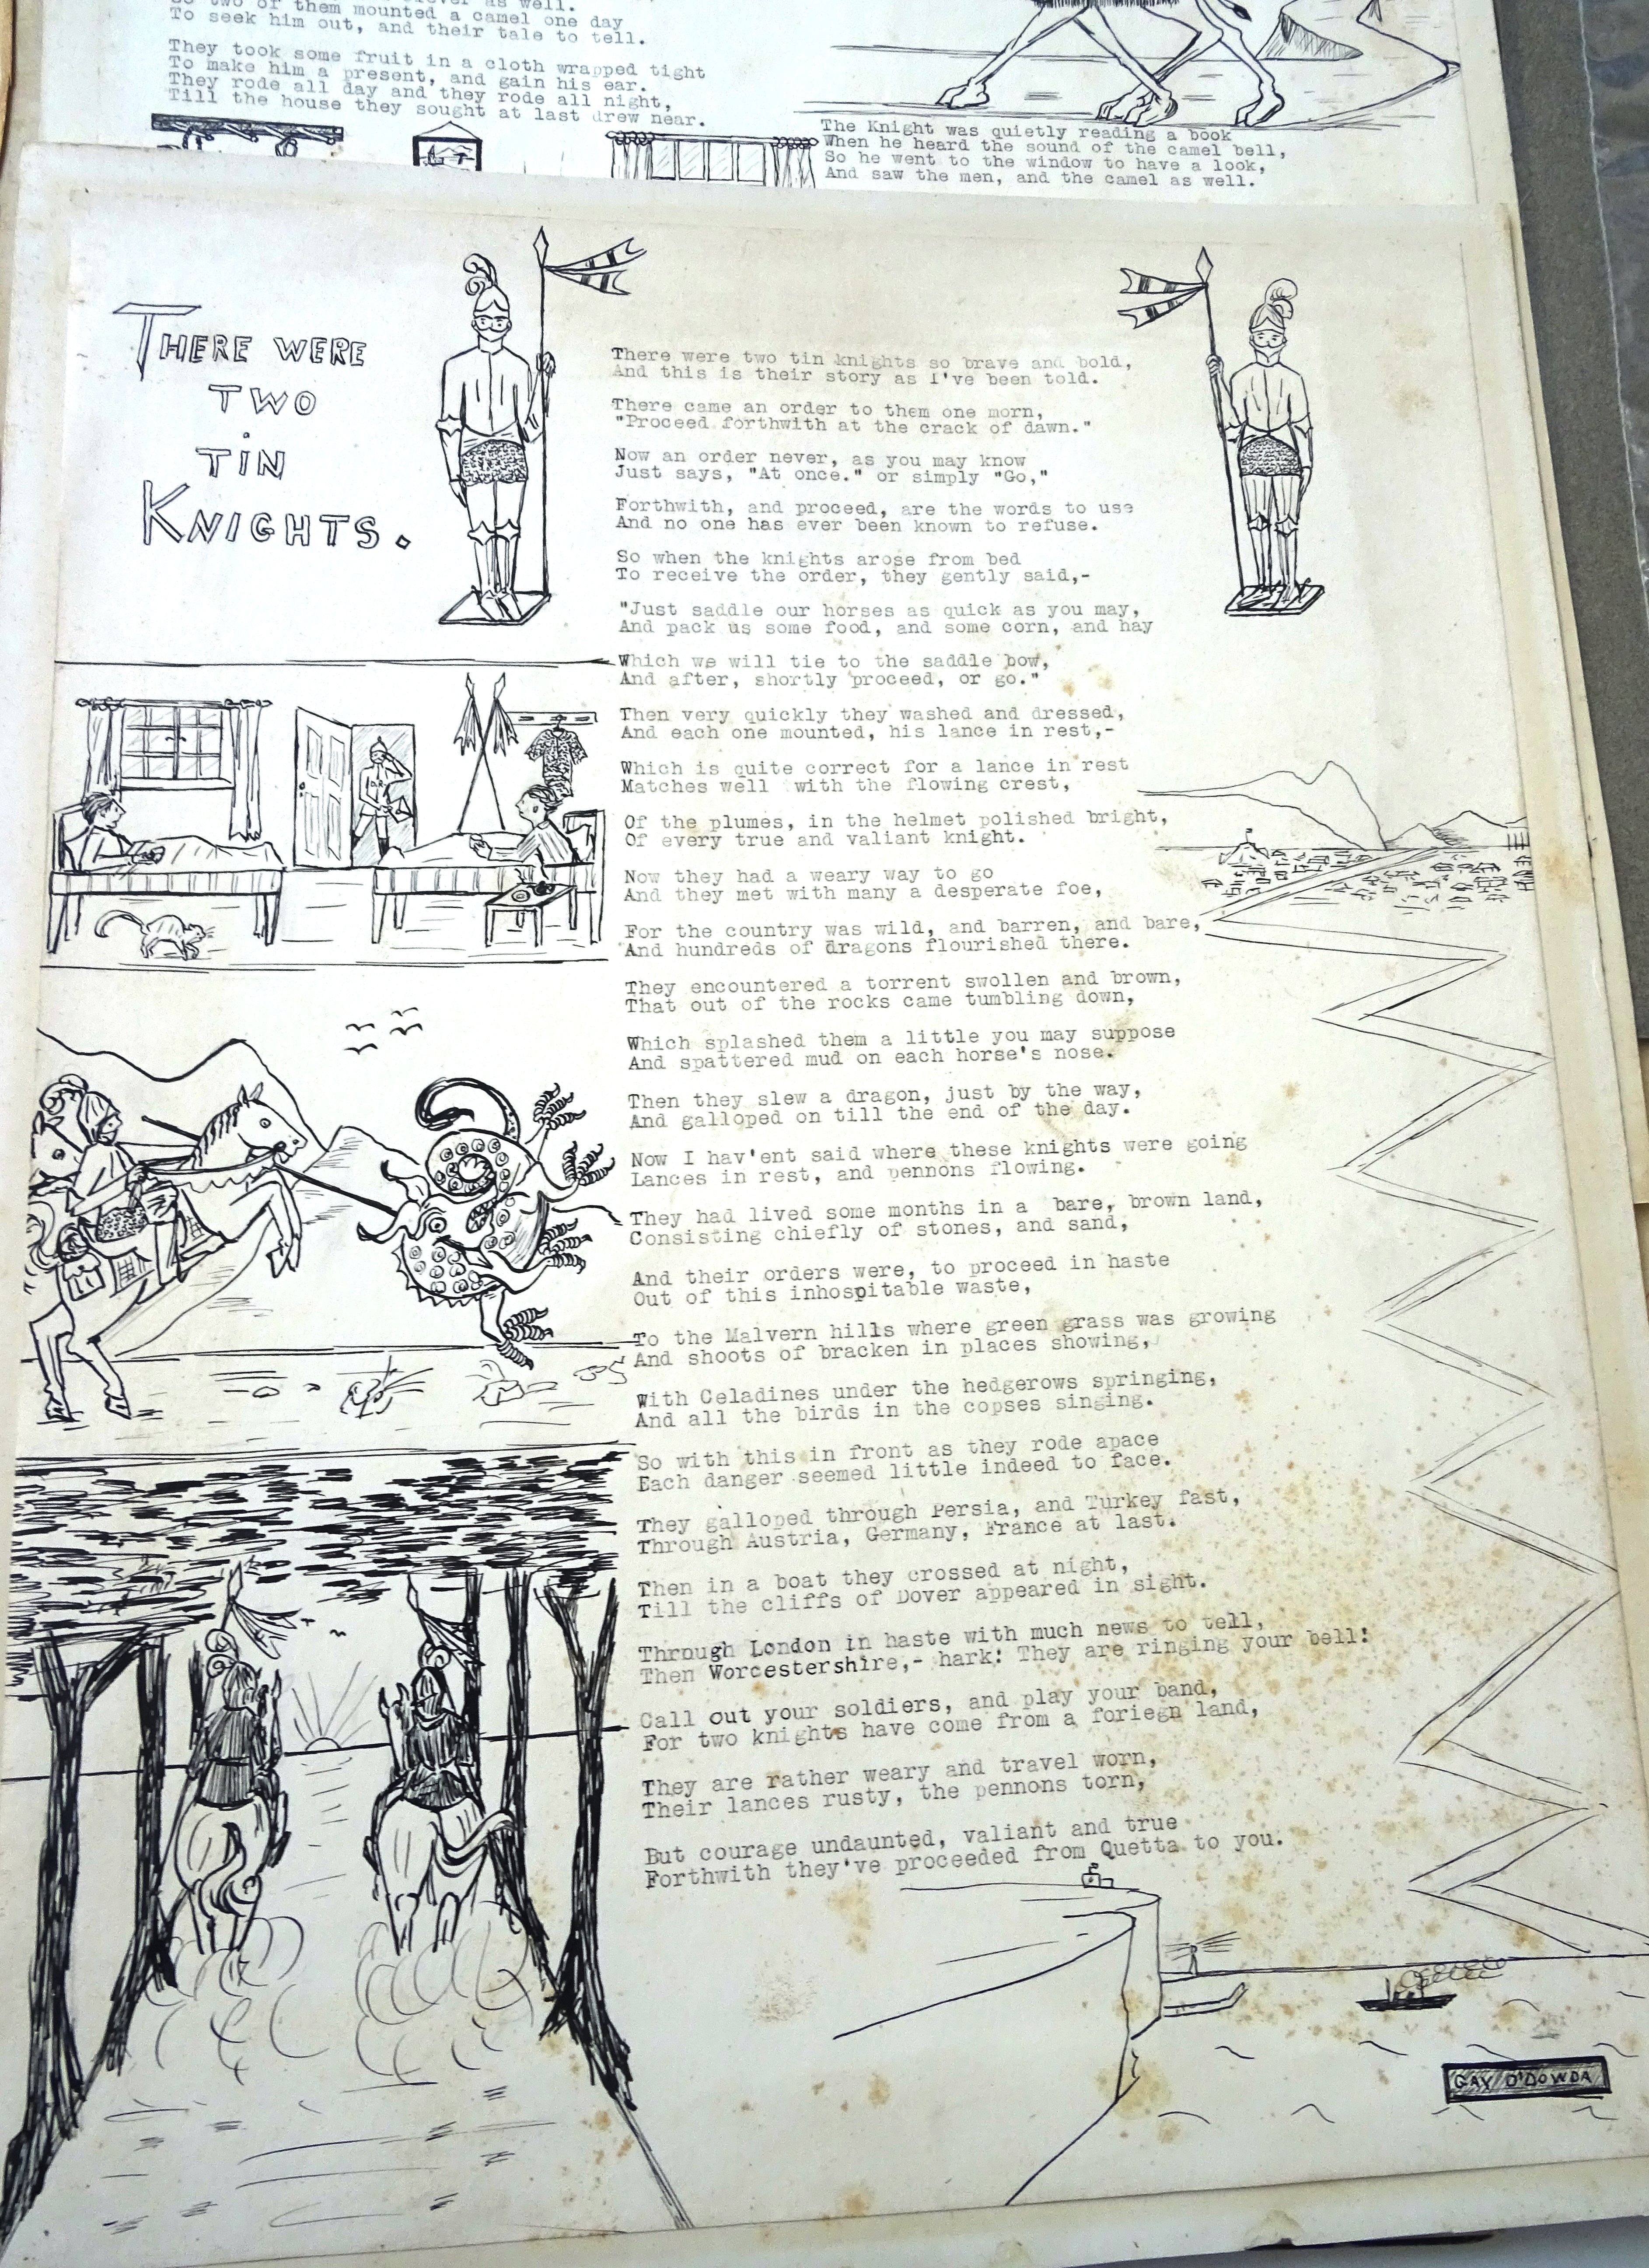 To seek him out, and their tale to tell.
They took some fruit in a cloth wrapped tight
To make him a present, and gain his ear.
They rode all day and they rode all night,
Till the house they sought at last drew near.
The Knight was quietly reading a book
When he heard the sound of the camel bell,
So he went to the window to have a look,
And saw the men, and the camel as well.
THERE WERE
TWO
TIN
KNIGHTS.
There were two tin knights so brave and bold,
And this is their story as I've been told.
There came an order to them one morn,
"Proceed forthwith at the crack of dawn."
Now an order never, as you may know
Just says, "At once." or simply "Go,"
Forthwith, and proceed, are the words to use
And no one has ever been known to refuse.
So when the knights arose from bed
To receive the order, they gently said,-
"Just saddle our horses as quick as you may,
And pack us some food, and some corn, and hay
Which we will tie to the saddle bow,
And after, shortly proceed, or go."
Then very quickly they washed and dressed,
And each one mounted, his lance in rest,-
Which is quite correct for a lance in rest
Matches well with the flowing crest,
Of the plumes, in the helmet polished bright,
Of every true and valiant knight.
Now they had a weary way to go
And they met with many a desperate foe,
For the country was wild, and barren, and bare,
And hundreds of dragons flourished there.
They encountered a torrent swollen and brown,
That out of the rocks came tumbling down,
Which splashed them a little you may suppose
And spattered mud on each horse's nose.
Then they slew a dragon, just by the way,
And galloped on till the end of the day.
Now I hav'ent said where these knights were going
Lances in rest, and pennons flowing.
They had lived some months in a bare, brown land,
Consisting chiefly of stones, and sand,
And their orders were, to proceed in haste
Out of this inhospitable waste,
To the Malvern hills where green grass was growing
And shoots of bracken in places showing,
With Celadines under the hedgerows springing,
And all the birds in the copses singing.
So with this in front as they rode apace
Each danger seemed little indeed to face.
They galloped through Persia, and Turkey fast,
Through Austria, Germany, France at last.
Then in a boat they crossed at night,
Till the cliffs of Dover appeared in sight.
Through London in haste with much news to tell,
Then Worcestershire,- hark! They are ringing your bell!
Call out your soldiers, and play your band,
For two knights have come from a foriegn land,
They are rather weary and travel worn,
Their lances rusty, the pennons torn,
But courage undaunted, valiant and true
Forthwith they've proceeded from Quetta to you.
GAY O'DOWDA